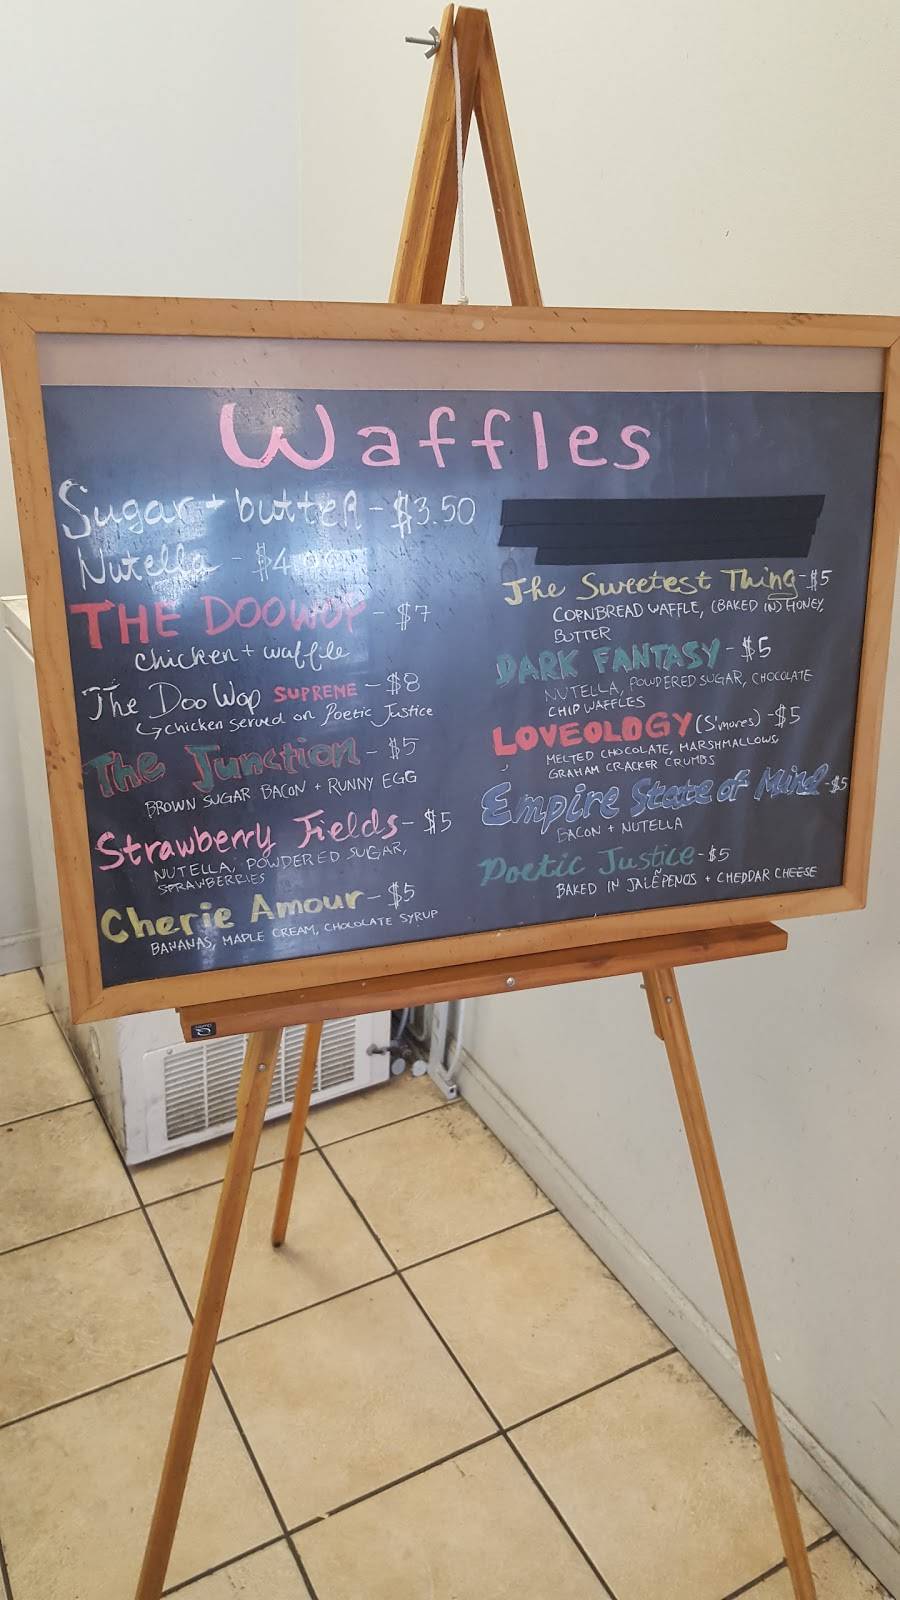 Waffles
Sugar + butter - $3.50
Nutella - $4.00
THE DOOWOP - $7
Chicken + waffle
The Doo Wop SUPREME - $8
chicken served on Poetic Justice
The Junction - $5
BROWN SUGAR BACON + RUNNY EGG
Strawberry Fields - $5
NUTELLA, POWDERED SUGAR,
STRAWBERRIES
Cherie Amour - $5
BANANAS, MAPLE CREAM, CHOCOLATE SYRUP
The Sweetest Thing - $5
CORNBREAD WAFFLE, (BAKED IN) HONEY,
BUTTER
DARK FANTASY - $5
NUTELLA, POWDERED SUGAR, CHOCOLATE
CHIP WAFFLES
LOVEOLOGY (S'mores) - $5
MELTED CHOCOLATE, MARSHMALLOWS,
GRAHAM CRACKER CRUMBS
Empire State of Mind - $5
BACON + NUTELLA
Poetic Justice - $5
BAKED IN JALEPENOS + CHEDDAR CHEESE